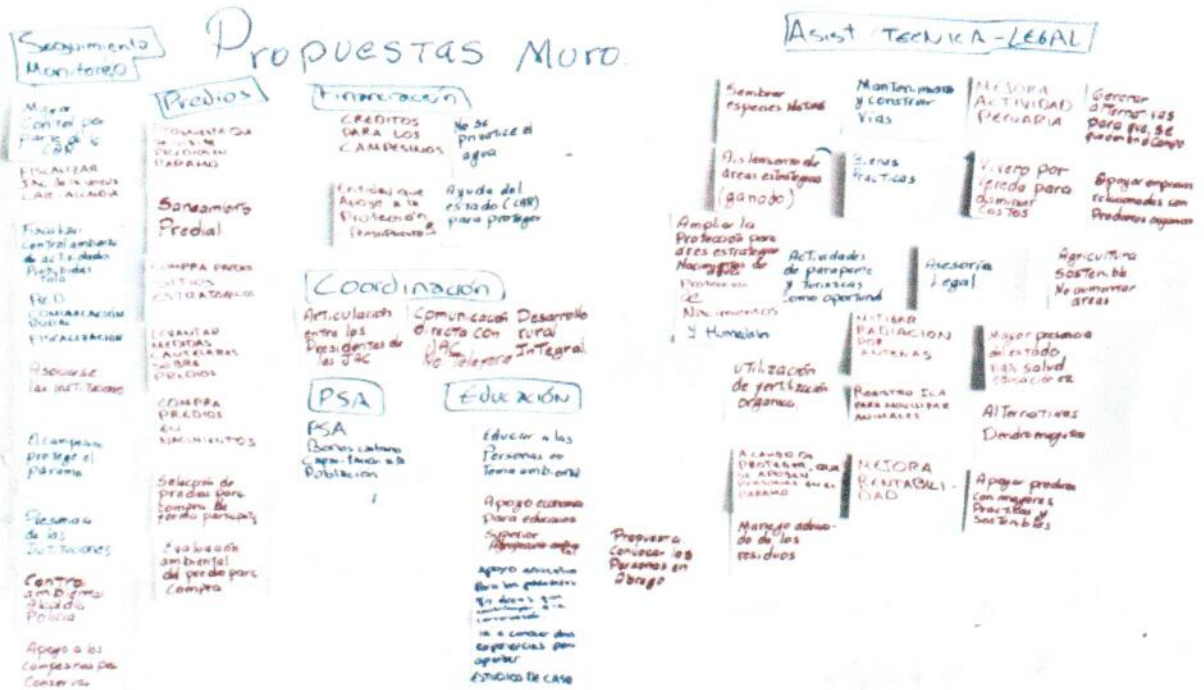 Propuestas Muro.
Seguimiento
Monitoreo
Mayor
Control por
parte de la
CAR
FISCALIZAR
JAC de la vereda
CAR-ALCALDIA
Fiscalizar
Control ambiental
de actividades
Prohibidas
Tala
RED
COMUNICACIÓN
RURAL
FISCALIZACIÓN
Asociarse
las instituciones
El campesino
protege el
páramo
de las
Instituciones
Control
ambiental
Alcaldia
Policia
Apoyo a los
Campesinos
Conservar
Predios
PREDIOS EN
PARAMO
Saneamiento
Predial
COMPRA PREDIOS
SITIOS
ESTRATEGICOS
LEVANTAR
MEDIDAS
CAUTELARES
SOBRE
PREDIOS
COMPRA
PREDIOS
EN
NACIMIENTOS
Selección de
predios para
compra de
forma
Evaluación
ambiental
del predio para
Compra
Financiación
CREDITOS
PARA LOS
CAMPESINOS
No se
privatice el
agua
Entidad que
Apoye a la
Protección
Presupuesto
Ayuda del
estado (CAR)
para proteger
Coordinación
Articulación
entre los
Presidentes de
las JAC
Comunicación
directa con
JAC
No Telefono
Desarrollo
rural
Integral
PSA
PSA
Bonos carbono
Capacitación a la
Población
Educación
Educar a las
Personas en
Tema ambiental
Apoyo economico
para educación
Superior
Apoyo educativo
Para los
En áreas que
Ir a conocer otras
experiencias para
aportar
ESTUDIOS DE CASO
Propuesta
Convocar las
Personas en
Abrego
Asist TECNICA-LEGAL
Sembrar
especies Nativas
Mantenimiento
y construir
vias
MEJORA
ACTIVIDAD
PECUARIA
Generar
alternativas
para que se
Aislamiento de
áreas estrategicas
(ganado)
Buenas
Practicas
Vivero por
Vereda para
disminuir
Costos
Apoyar empresas
relacionadas con
Productos organicos
Ampliar la
Protección para
áreas estrategicas
Nacimientos de
agua
Protección
de
Nacimientos
y Humedales
Actividades
de parapente
y Turisticas
Como oportunid
Asesoría
Legal
Agricultura
Sostenible
No aumentar
areas
Utilización
de fertilización
Organica
MITIGAR
RADIACION
POR
ANTENAS
Mayor presencia
del estado
salud
Educación
REGISTRO ICA
PARA MOVILIZAR
ANIMALES
Alternativas
Dendroenergeticas
A CAMBIO DE
PROTEGER, QUE
SE APOYEN
EN EL
PARAMO
MEJORA
RENTABILI-
DAD
Apoyar predios
Con mayores
Practicas y
Sostenibles
Manejo adecua-
do de los
residuos